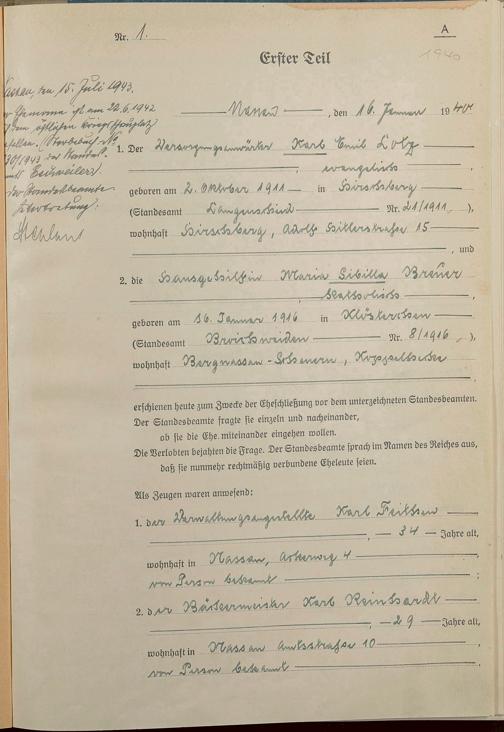 Nr. 1.
A
1940
Erster Teil
Nassau, den 15. Juli 1943.
Der Ehemann ist am 22.6.1942
auf dem östlichen Kriegsschauplatz
gefallen. Sterbebuch Nr.
30/1943 des Standes-
amts Eschweiler.
Der Standesbeamte
Nassau, den 16. Januar 19 40
1. Der Versorgungsanwärter Karl Emil Lotz
, evangelisch
geboren am 2. Oktober 1911 in Hirschberg
(Standesamt Langenscheid Nr. 21/1911),
wohnhaft Hirschberg, Adolf Hitlerstraße 15
, und
2. die Hausgehilfin Maria Sibilla Breuer
, katholisch
geboren am 16. Januar 1916 in
(Standesamt Broichweiden Nr. 8/1916),
wohnhaft Bergnassau-Scheuern,
erschienen heute zum Zwecke der Eheschließung vor dem unterzeichneten Standesbeamten.
Der Standesbeamte fragte sie einzeln und nacheinander,
ob sie die Ehe miteinander eingehen wollen.
Die Verlobten bejahten die Frage. Der Standesbeamte sprach im Namen des Reiches aus,
daß sie nunmehr rechtmäßig verbundene Eheleute seien.
Als Zeugen waren anwesend:
1. der Verwaltungsangestellte Karl
, 34 Jahre alt,
wohnhaft in Nassau, 4
von Person bekannt ;
2. der Bäckermeister Karl Reinhardt
, 29 Jahre alt,
wohnhaft in Nassau Amtsstraße 10
von Person bekannt